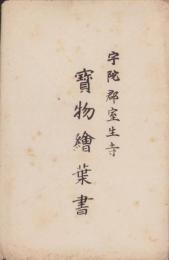 宇陀郡室生寺
寶物繪葉書